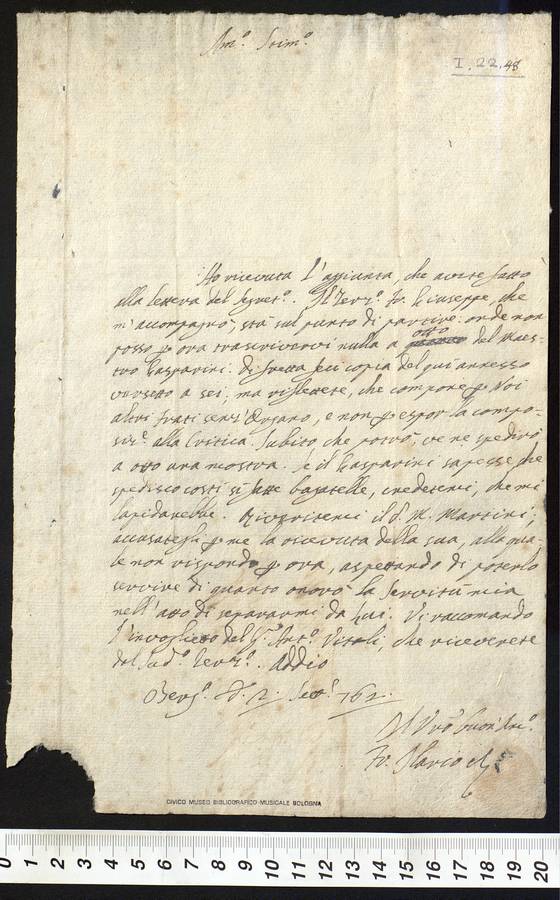 Am.º Stim.º
I. 22. 48
Ho ricevuta l'aggiunta, che avete fatto
alla lettera del Segret.º. Il Terz.º Fr. Giuseppe, che
m'accompagnò, stà sul punto di partire: onde non
posso p ora trascrivervi nulla a otto del Maes-
tro Gasparini. Di fretta feci copia del quì annesso
versetto a sei; ma riflettete, che compone p Noi
altri frati senz'Organo, e non p espor la compo-
siz.e alla Critica. Subito che potrò, ve ne spedirò
a otto una mostra. Se il Gasparini sapesse, che
spedisco costì sì fatte bagatelle, credetemi, che mi
lapidarebbe. Riveritemi il P. M. Martini;
accusateli p me la ricevuta della sua, alla qua-
le non rispondo p ora, aspettando di poterlo
servire di quanto onorò la Servitù mia
nell'atto di separarmi da Lui. Vi raccomando
l'invoglietto del S.r Ant.º Vitali, che riceverete
dal Sud.º Terz.º. Addio
Berg.º A. 2. Sett.e 762.
Il Vrô buon Am.º
Fr. Ilario
CIVICO MUSEO BIBLIOGRAFICO-MUSICALE BOLOGNA
0 1 2 3 4 5 6 7 8 9 10 11 12 13 14 15 16 17 18 19 20